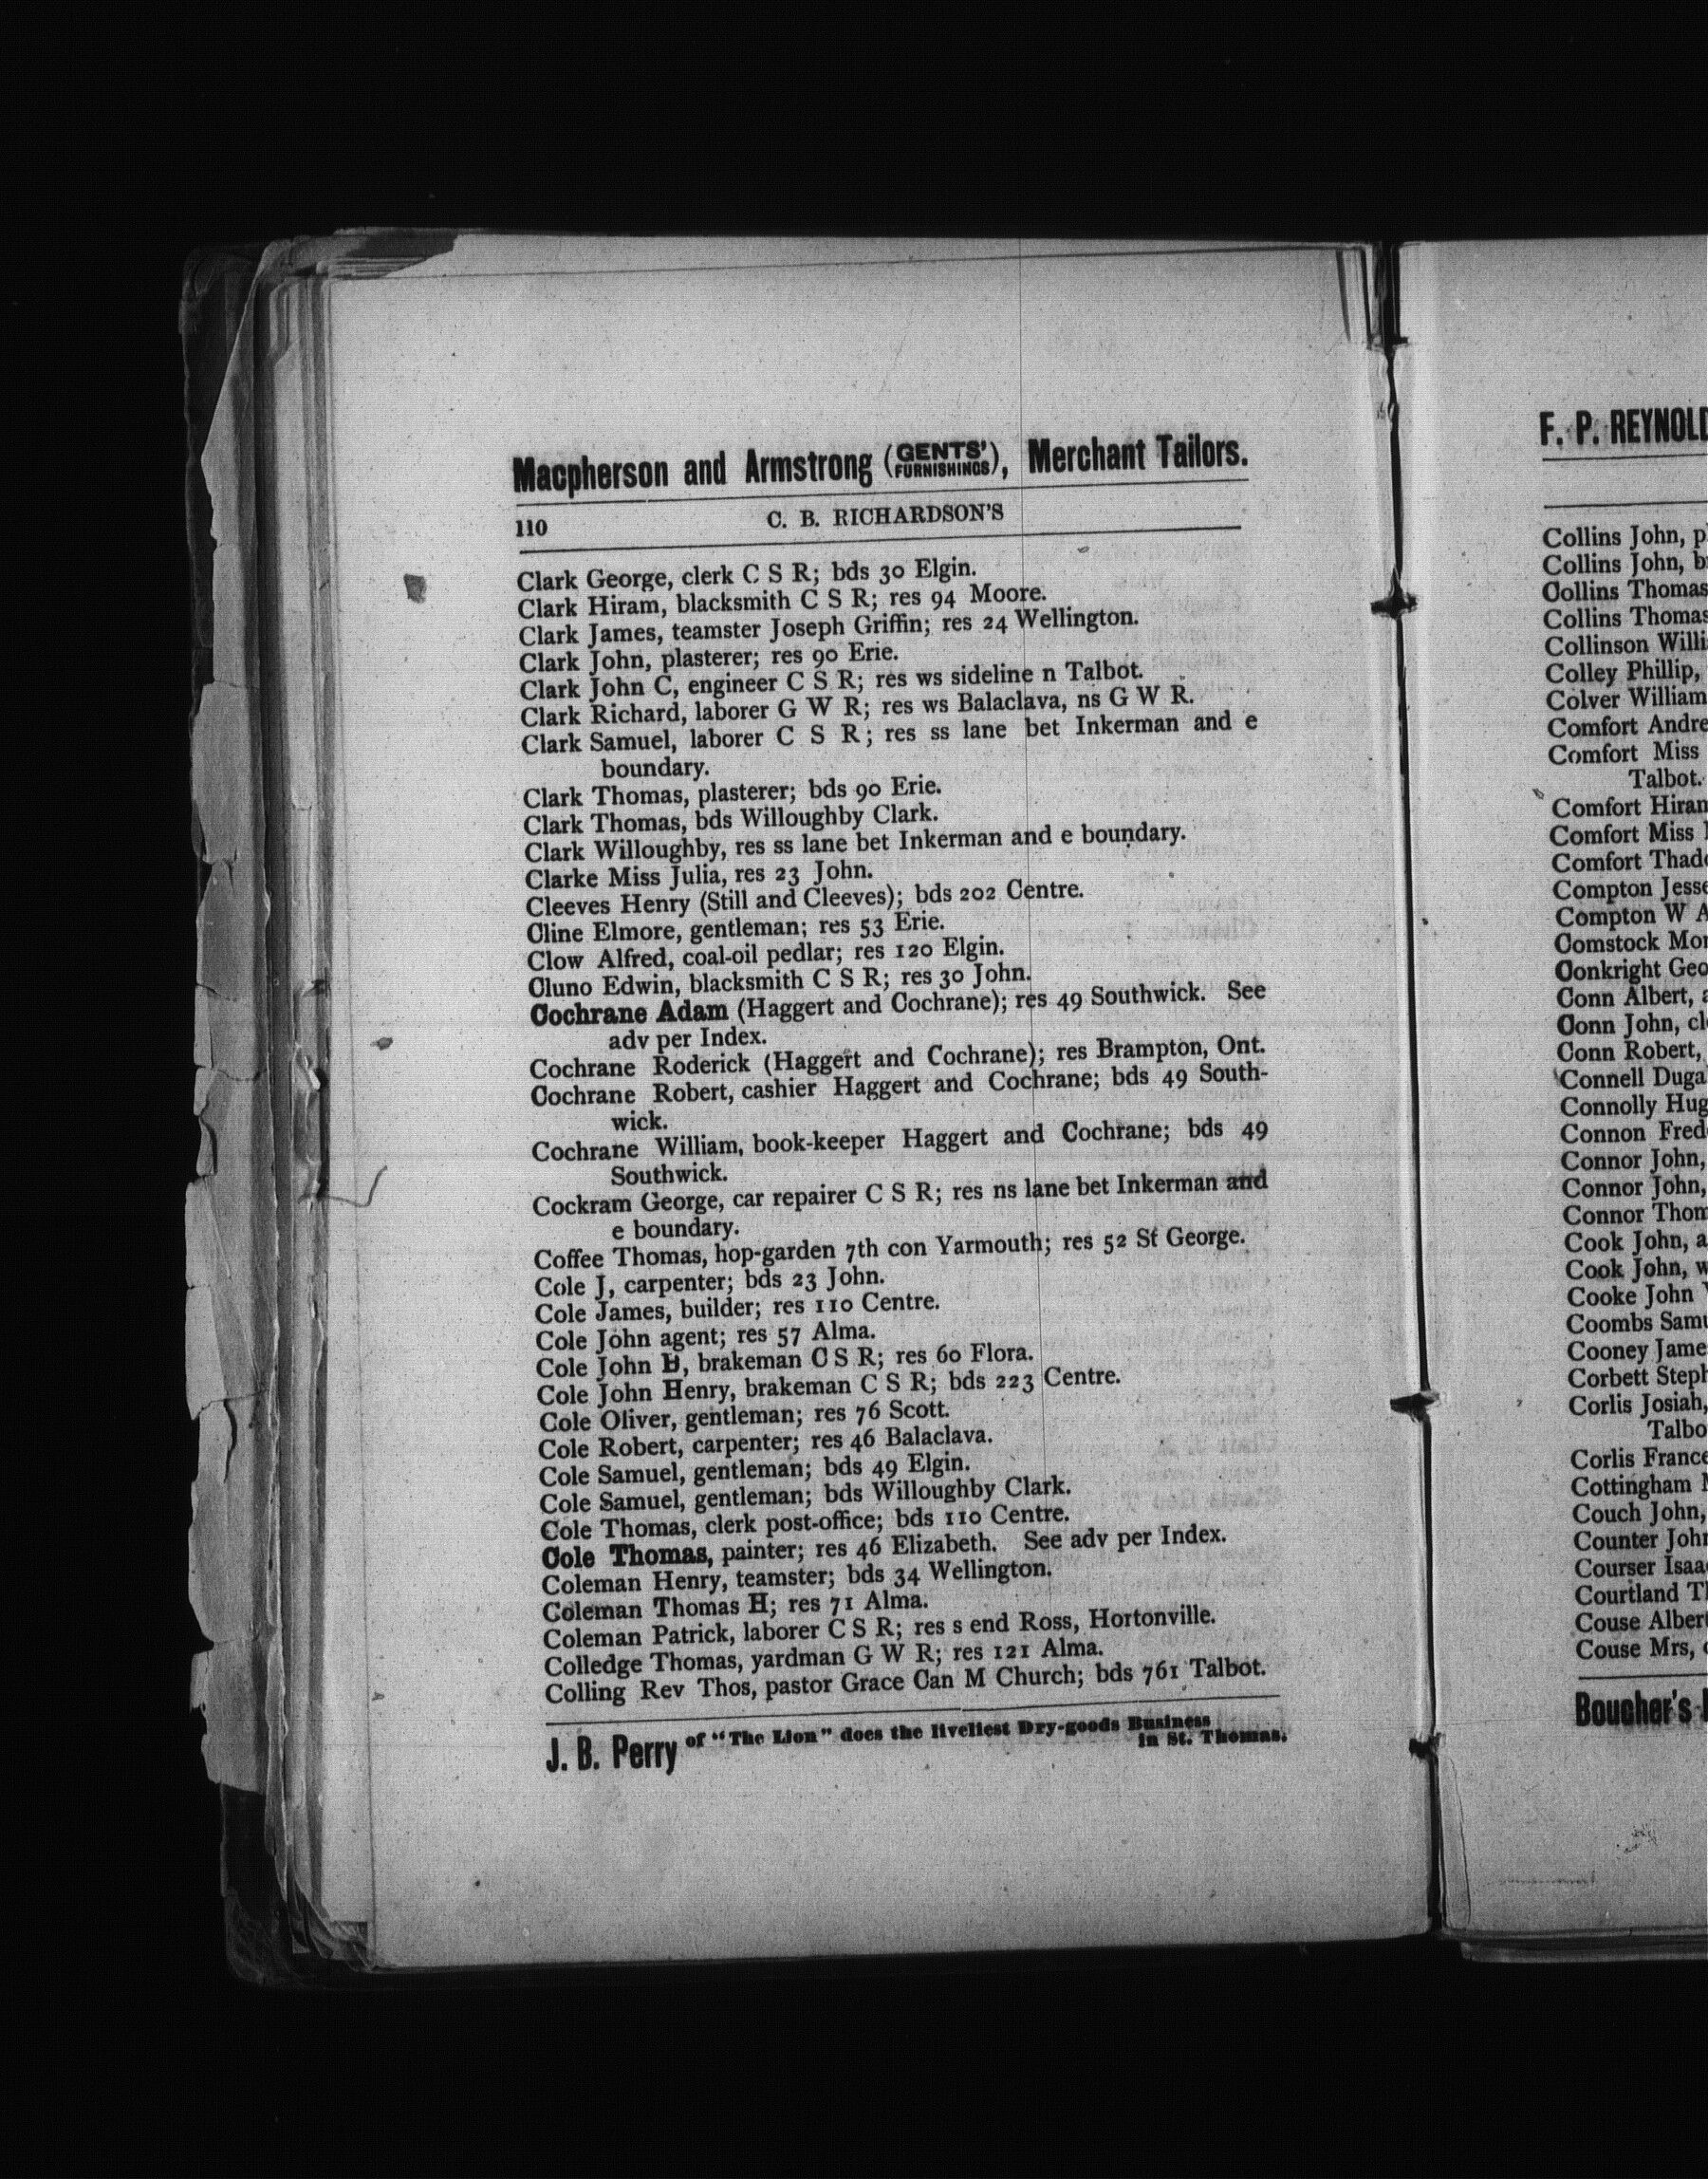 Macpherson and Armstrong (GENTS' FURNISHINGS), Merchant Tailors.
110 C. B. RICHARDSON'S
Clark George, clerk C S R; bds 30 Elgin.
Clark Hiram, blacksmith C S R; res 94 Moore.
Clark James, teamster Joseph Griffin; res 24 Wellington.
Clark John, plasterer; res 90 Erie.
Clark John C, engineer C S R; res ws sideline n Talbot.
Clark Richard, laborer G W R; res ws Balaclava, ns G W R.
Clark Samuel, laborer C S R; res ss lane bet Inkerman and e
boundary.
Clark Thomas, plasterer; bds 90 Erie.
Clark Thomas, bds Willoughby Clark.
Clark Willoughby, res ss lane bet Inkerman and e boundary.
Clarke Miss Julia, res 23 John.
Cleeves Henry (Still and Cleeves); bds 202 Centre.
Cline Elmore, gentleman; res 53 Erie.
Clow Alfred, coal-oil pedlar; res 120 Elgin.
Cluno Edwin, blacksmith C S R; res 30 John.
Cochrane Adam (Haggert and Cochrane); res 49 Southwick. See
adv per Index.
Cochrane Roderick (Haggert and Cochrane); res Brampton, Ont.
Cochrane Robert, cashier Haggert and Cochrane; bds 49 South-
wick.
Cochrane William, book-keeper Haggert and Cochrane; bds 49
Southwick.
Cockram George, car repairer C S R; res ns lane bet Inkerman and
e boundary.
Coffee Thomas, hop-garden 7th con Yarmouth; res 52 St George.
Cole J, carpenter; bds 23 John.
Cole James, builder; res 110 Centre.
Cole John agent; res 57 Alma.
Cole John B, brakeman C S R; res 60 Flora.
Cole John Henry, brakeman C S R; bds 223 Centre.
Cole Oliver, gentleman; res 76 Scott.
Cole Robert, carpenter; res 46 Balaclava.
Cole Samuel, gentleman; bds 49 Elgin.
Cole Samuel, gentleman; bds Willoughby Clark.
Cole Thomas, clerk post-office; bds 110 Centre.
Cole Thomas, painter; res 46 Elizabeth. See adv per Index.
Coleman Henry, teamster; bds 34 Wellington.
Coleman Thomas H; res 71 Alma.
Coleman Patrick, laborer C S R; res s end Ross, Hortonville.
Colledge Thomas, yardman G W R; res 121 Alma.
Colling Rev Thos, pastor Grace Can M Church; bds 761 Talbot.
J. B. Perry of "The Lion" does the liveliest Dry-goods Business
in St. Thomas.
F. P.
Collins John,
Collins John,
Collins Thomas
Collins Thomas
Collinson
Colley Phillip,
Colver William
Comfort
Comfort Miss
Talbot.
Comfort
Comfort Miss
Comfort
Compton
Compton W
Comstock
Conkright
Conn Albert,
Conn John,
Conn Robert,
Connell
Connolly
Connon
Connor John,
Connor John,
Connor
Cook John,
Cook John,
Cooke John
Coombs
Cooney
Corbett
Corlis Josiah,
Corlis
Cottingham
Couch John,
Counter
Courser
Courtland
Couse
Couse Mrs,
Boucher's